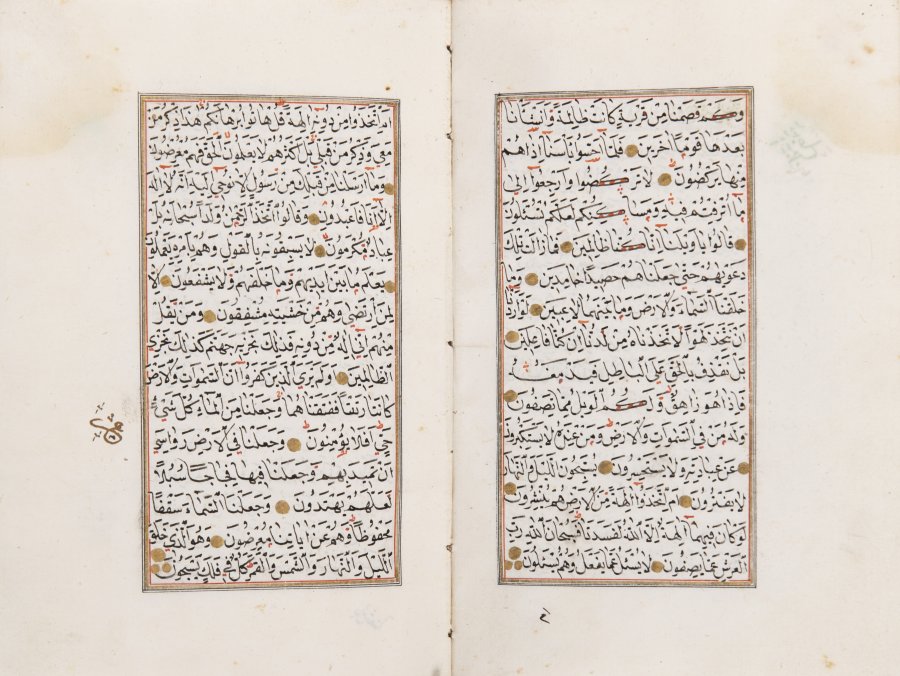 وكم قصمنا من قرية كانت ظالمة وانشانا
بعدها قوما اخرين فلما احسوا باسنا اذا هم
منها يركضون لا تركضوا وارجعوا الى
ما اترفتم فيه ومساكنكم لعلكم تسئلون
قالوا يا ويلنا انا كنا ظالمين فما زالت تلك
دعويهم حتى جعلناهم حصيدا خامدين وما
خلقنا السماء والارض وما بينهما لاعبين لو اردنا
ان نتخذ لهوا لاتخذناه من لدنا ان كنا فاعلين
بل نقذف بالحق على الباطل فيدمغه
فاذا هو زاهق ولكم الويل مما تصفون
وله من في السموات والارض ومن عنده لا يستكبرون
عن عبادته ولا يستحسرون يسبحون الليل والنهار
لا يفترون ام اتخذوا الهة من الارض هم ينشرون
لو كان فيهما الهة الا الله لفسدتا فسبحان الله رب
العرش عما يصفون لا يسئل عما يفعل وهم يسئلون
ام
ام اتخذوا من دونه الهة قل هاتوا برهانكم هذا ذكر من
معي وذكر من قبلي بل اكثرهم لا يعلمون الحق فهم معرضون
وما ارسلنا من قبلك من رسول الا نوحي اليه انه لا اله
الا انا فاعبدون وقالوا اتخذ الرحمن ولدا سبحانه بل
عباد مكرمون لا يسبقونه بالقول وهم بامره يعملون
يعلم ما بين ايديهم وما خلفهم ولا يشفعون الا
لمن ارتضى وهم من خشيته مشفقون ومن يقل
منهم اني اله من دونه فذلك نجزيه جهنم كذلك نجزي
الظالمين اولم يرى الذين كفروا ان السموات والارض
كانتا رتقا ففتقناهما وجعلنا من الماء كل شيء
حي افلا يؤمنون وجعلنا في الارض رواسي
ان تميد بهم وجعلنا فيها فجاجا سبلا
لعلهم يهتدون وجعلنا السماء سقفا
محفوظا وهم عن اياتنا معرضون وهو الذي خلق
الليل والنهار والشمس والقمر كل في فلك يسبحون